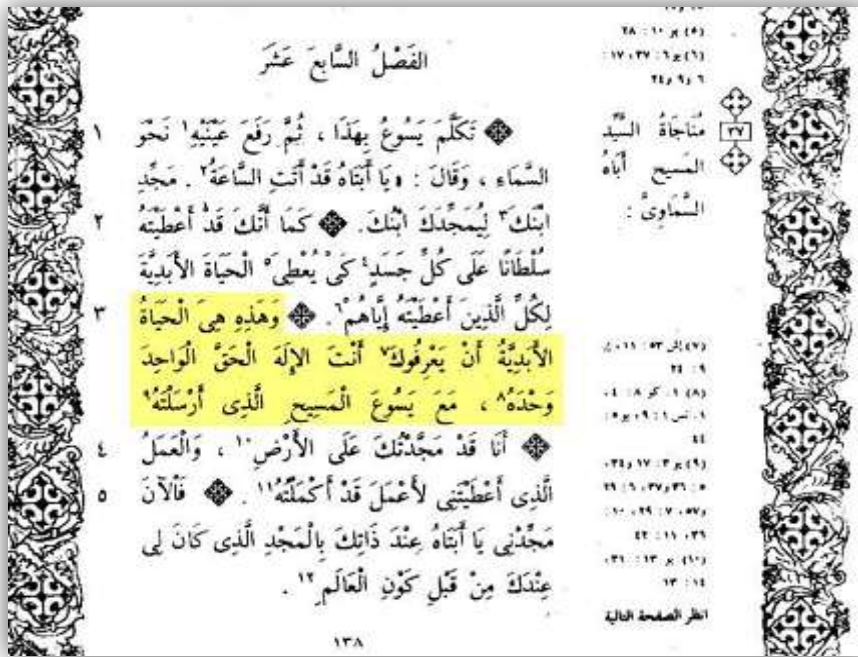 الفَصْلُ السَّابِعَ عَشَرَ
١ تَكَلَّمَ يَسُوعُ بِهَذَا ، ثُمَّ رَفَعَ عَيْنَيْهِ١ نَحْوَ
السَّمَاءِ ، وَقَالَ : «يَا أَبَتَاهُ قَدْ أَتَتِ السَّاعَةُ٢ . مَجِّدِ
٢ ابْنَكَ٣ لِيُمَجِّدَكَ ابْنُكَ. كَمَا أَنَّكَ قَدْ أَعْطَيْتَهُ
سُلْطَانًا عَلَى كُلِّ جَسَدٍ٤ كَىْ يُعْطِىَ٥ الْحَيَاةَ الأَبَدِيَّةَ
٣ لِكُلِّ الَّذِينَ أَعْطَيْتَهُ إِيَّاهُمْ٦. وَهَذِهِ هِىَ الْحَيَاةُ
الأَبَدِيَّةُ أَنْ يَعْرِفُوكَ٧ أَنْتَ الإِلَهَ الْحَقَّ الْوَاحِدَ
وَحْدَهُ٨ ، مَعَ يَسُوعَ الْمَسِيحِ الَّذِى أَرْسَلْتَهُ٩
٤ أَنَا قَدْ مَجَّدْتُكَ عَلَى الأَرْضِ١٠ ، وَالْعَمَلُ
٥ الَّذِى أَعْطَيْتَنِى لأَعْمَلَ قَدْ أَكْمَلْتُهُ١١ . فَالآنَ
مَجِّدْنِى يَا أَبَتَاهُ عِنْدَ ذَاتِكَ بِالْمَجْدِ الَّذِى كَانَ لِى
عِنْدَكَ مِنْ قَبْلِ كَوْنِ الْعَالَمِ١٢ .
١٣٨
(٥) يو ١٠ : ٢٨
(٦) يو ٦ : ٣٧ ، ١٧ :
٦ و ٩ و ٢٤
٣٧ مُنَاجَاةُ السَّيِّد
المَسيح أَبَاهُ
السَّمَاوِىَّ :
(٧) إش ٥٣ : ١١،
٩ : ٢٤
(٨) ١. كو ٨ : ٤،
١. تس ١ : ٩، يو ٥ :
٤٤
(٩) يو ٣ : ١٧ و ٣٤،
٥ : ٣٦ و ٣٧، ٦ : ٢٩
و ٥٧، ٧ : ٢٩، ١٠ :
٣٦، ١١ : ٤٢
(١٠) يو ١٣ : ٣١،
١٤ : ١٣
انظر الصفحة التالية